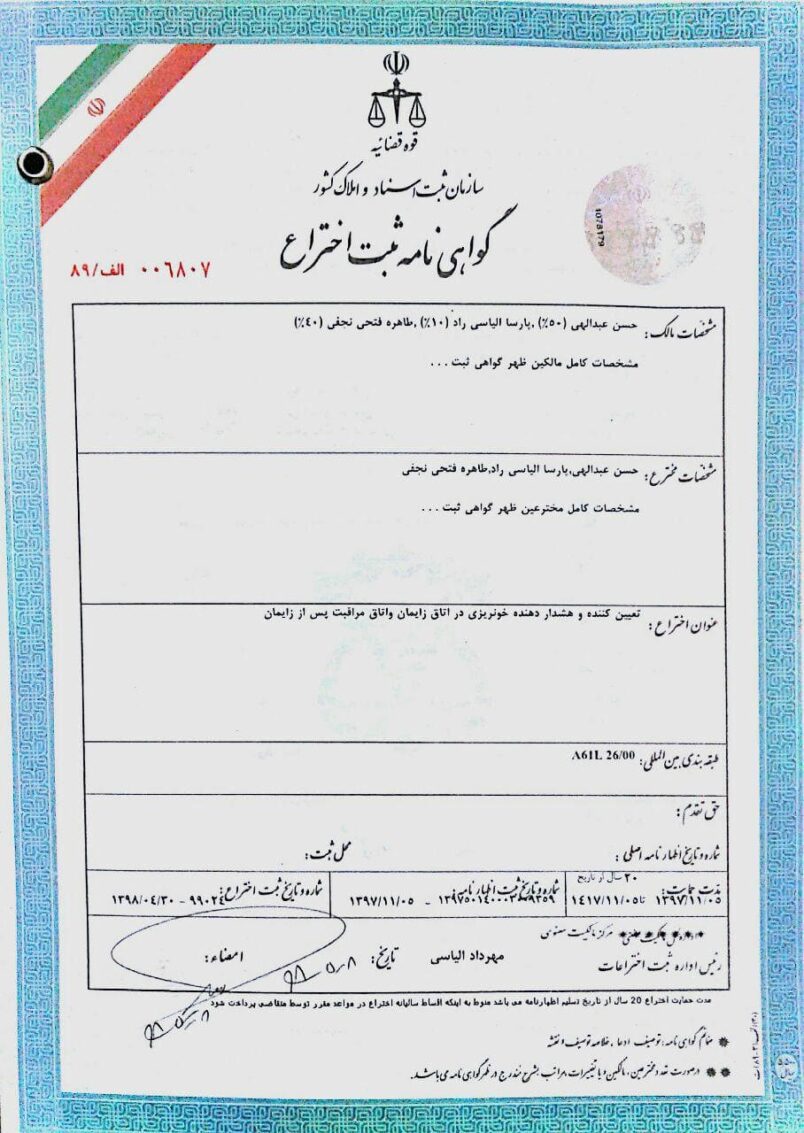 قوه قضائیه
سازمان ثبت اسناد و املاک کشور
گواهی نامه ثبت اختراع
1078179
۰۰٦۸۰۷ الف/۸۹
مشخصات مالک: حسن عبدالهی (۵۰٪) ,پارسا الیاسی راد (۱۰٪) ,طاهره فتحی نجفی (٤۰٪)
مشخصات کامل مالکین ظهر گواهی ثبت . . .
مشخصات مخترع: حسن عبدالهی,پارسا الیاسی راد,طاهره فتحی نجفی
مشخصات کامل مخترعین ظهر گواهی ثبت . . .
عنوان اختراع: تعیین کننده و هشدار دهنده خونریزی در اتاق زایمان واتاق مراقبت پس از زایمان
طبقه بندی بین المللی: A61L 26/00
حق تقدم:
شماره و تاریخ اظهار نامه اصلی: محل ثبت:
مدت حمایت: ۲۰ سال از تاریخ
۱۳۹۷/۱۱/۰۵ تا ۱٤۱۷/۱۱/۰۵
شماره و تاریخ ثبت اظهار نامه:
۱۳۹۷/۱۱/۰۵
شماره و تاریخ ثبت اختراع: ۹۹۰۲٤ - ۱۳۹۸/۰٤/۳۰
مرکز مالکیت معنوی
رئیس اداره ثبت اختراعات مهرداد الیاسی تاریخ: ۹۸-۵-۸ امضاء:
مدت حمایت اختراع 20 سال از تاریخ تسلیم اظهارنامه می باشد منوط به اینکه اقساط سالیانه اختراع در مواعد مقرر توسط متقاضی پرداخت شود
ضمائم گواهی نامه: توصیف، ادعا، خلاصه توصیف و نقشه
در صورت تعدد مخترعین، مالکین و یا تغییرات، مراتب بشرح مندرج در ظهر گواهی نامه می باشد.